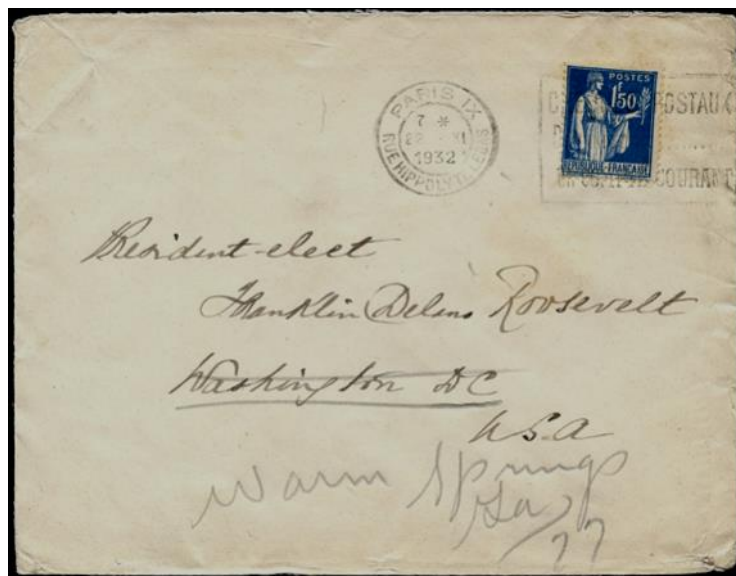 PARIS IX
7 *
29 XI
1932
RUE HIPPOLYTE LEBAS
POSTES
1F50
REPUBLIQUE FRANCAISE
POSTAUX
COURANT
President-elect
Franklin Delano Roosevelt
Washington DC
USA
Warm Springs
Ga